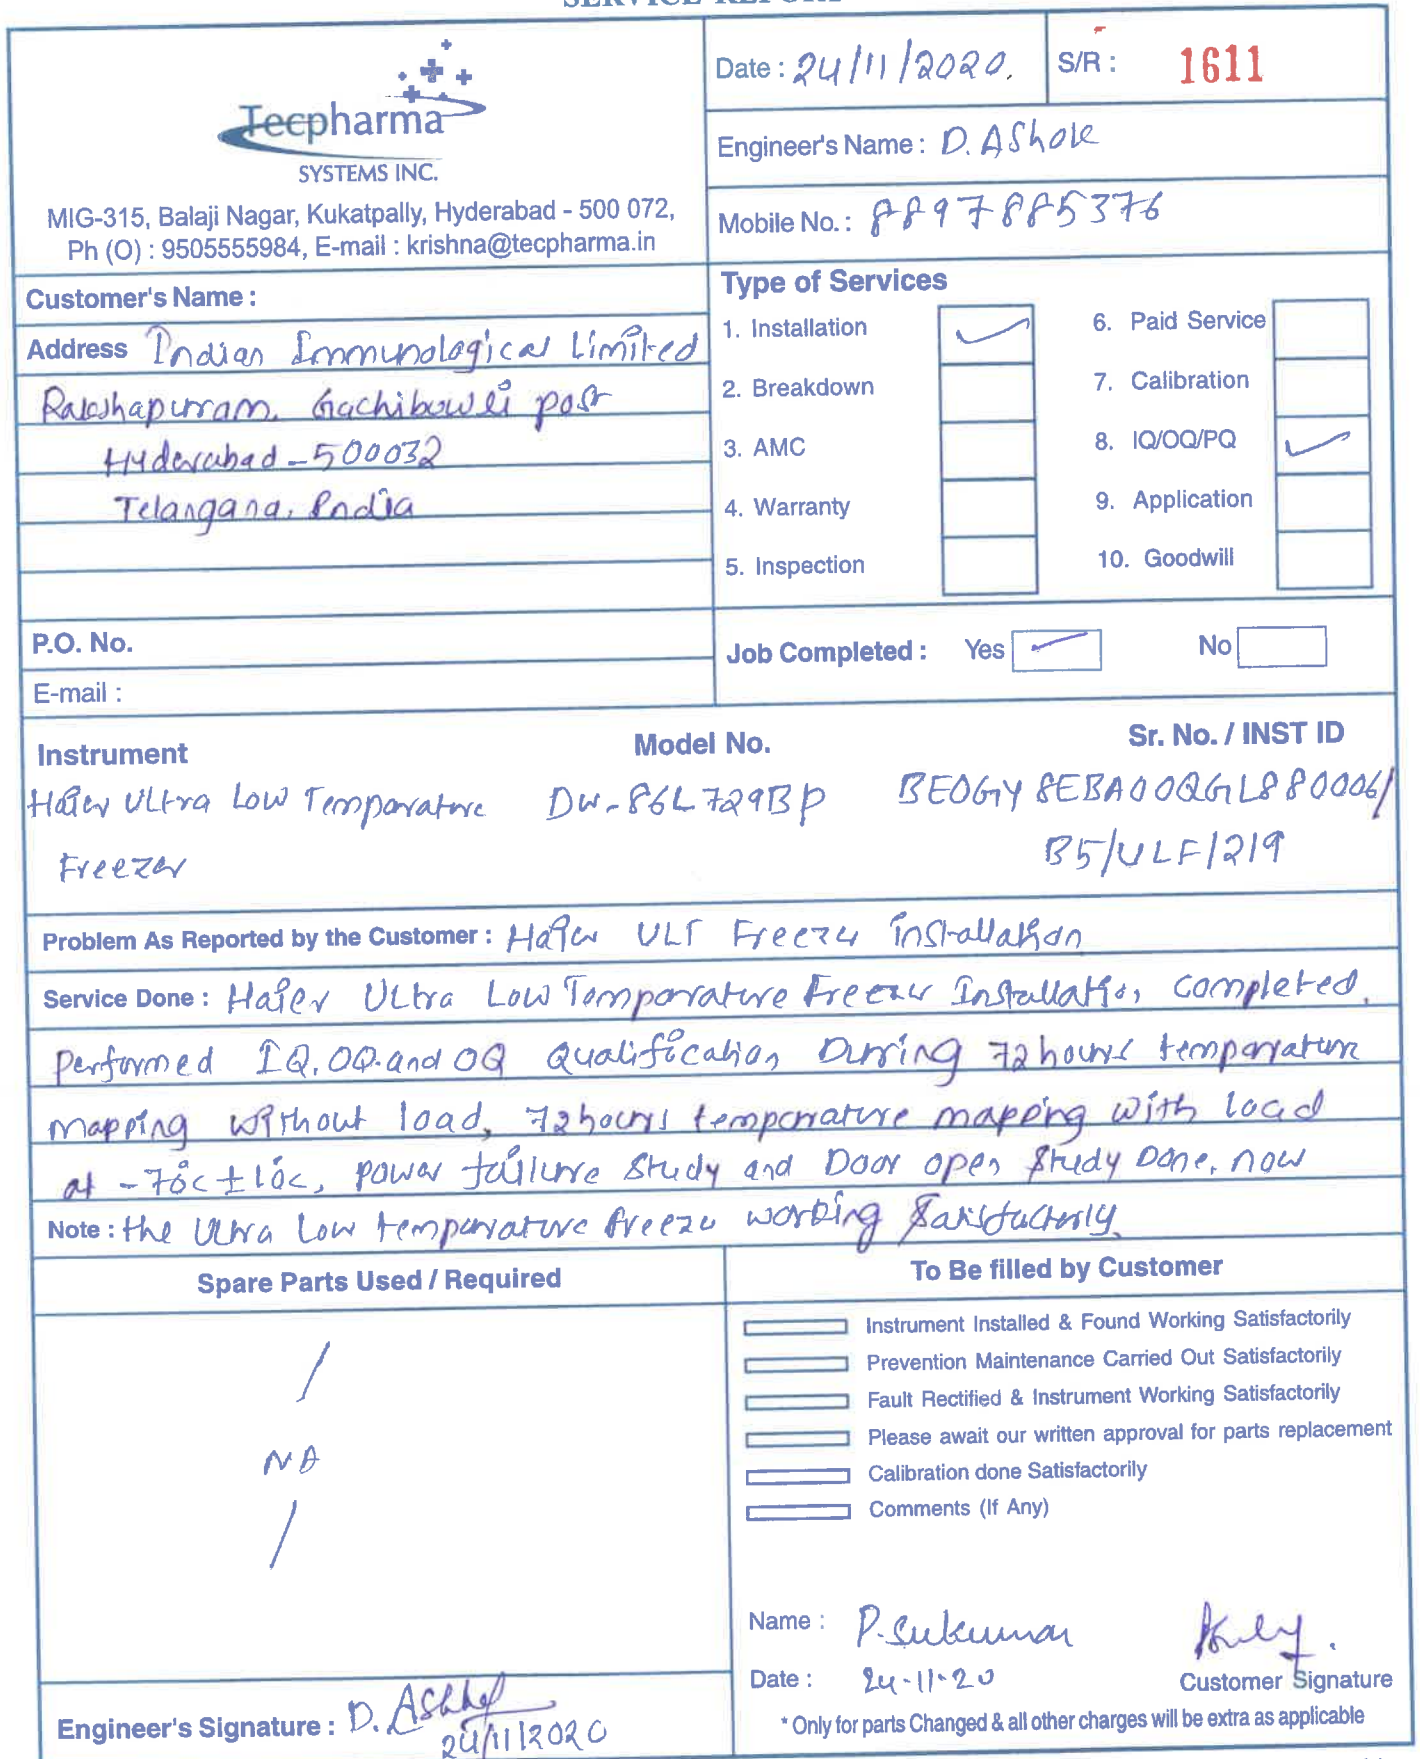 SERVICE REPORT
Tecpharma
SYSTEMS INC.
MIG-315, Balaji Nagar, Kukatpally, Hyderabad - 500 072,
Ph (O) : 9505555984, E-mail : krishna@tecpharma.in
Date : 24/11/2020. S/R : 1611
Engineer's Name : D. AShok
Mobile No. : 8897885376
Customer's Name :
Address Indian Immunological Limited
Rakshapurram, Gachibowli post
Hyderabad - 500032
Telangana, India
P.O. No.
E-mail :
Type of Services
1. Installation
2. Breakdown
3. AMC
4. Warranty
5. Inspection
6. Paid Service
7. Calibration
8. IQ/OQ/PQ
9. Application
10. Goodwill
Job Completed : Yes No
Instrument Model No. Sr. No. / INST ID
Haier Ultra Low Temparature DW-86L729BP BE0GY8EBA00QGL880006/
Freezer B5/ULF/219
Problem As Reported by the Customer : Haier ULT Freezer installation
Service Done : Haier Ultra Low Temparature Freezer Installation completed.
Performed IQ, OQ and OQ Qualification During 72 hours temparature
mapping without load, 72 hours temparature mapping with load
at -70°c ± 10c, power failure study and Door open study Done, now
Note : the Ultra Low temparature freezer working satisfactorily.
Spare Parts Used / Required
NA
Engineer's Signature : D. Ashok
24/11/2020
To Be filled by Customer
Instrument Installed & Found Working Satisfactorily
Prevention Maintenance Carried Out Satisfactorily
Fault Rectified & Instrument Working Satisfactorily
Please await our written approval for parts replacement
Calibration done Satisfactorily
Comments (If Any)
Name : P. Sukumar
Date : 24-11-20
Customer Signature
* Only for parts Changed & all other charges will be extra as applicable